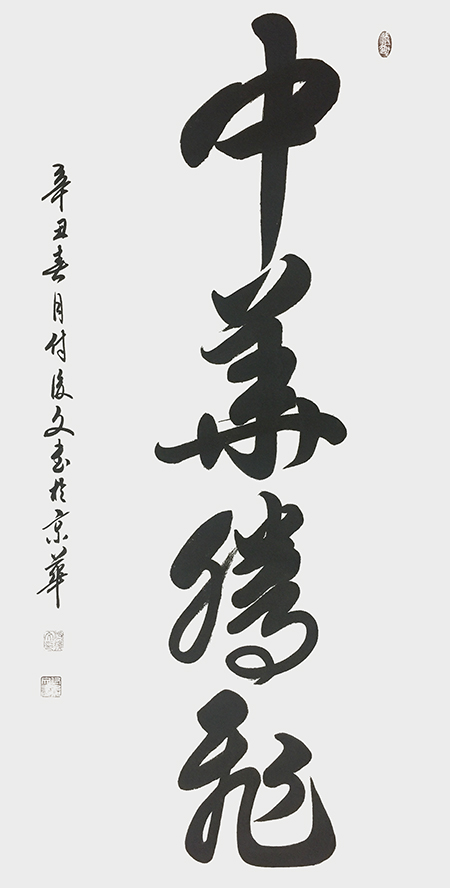 中華騰飛
辛丑春月付後文書於京華